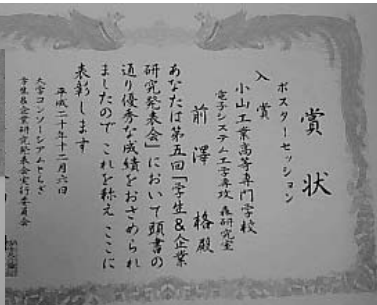 賞状
ポスターセッション
入賞
小山工業高等専門学校
電子システム工学専攻 森研究室
前澤 格殿
あなたは第五回「学生＆企業
研究発表会」において頭書の
通り優秀な成績をおさめられ
ましたのでこれを称えここに
表彰します
平成二十年十二月六日
大学コンソーシアムとちぎ
学生＆企業研究発表会実行委員会